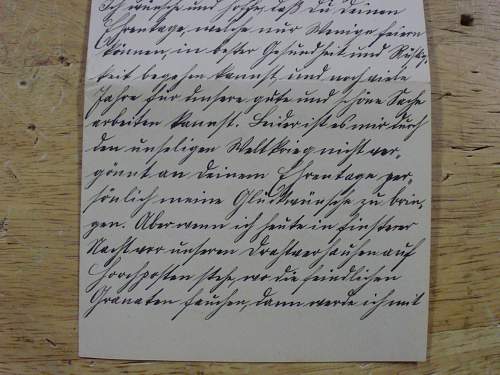 Ich wünsche und hoffe, daß Du Deinen
Ehrentage, welche nur Wenige feiern
können, in bester Gesundheit und Rüstig-
keit begehen kannst und noch viele
Jahre für unsere gute und schöne Sache
arbeiten kannst. Leider ist es mir durch
den unseligen Weltkrieg nicht ver-
gönnt an Deinem Ehrentage per-
sönlich meine Glückwünsche zu brin-
gen. Aber wenn ich heute in finsterer
Nacht vor unseren Drahtverhauen auf
Horchposten stehe, wo die feindlichen
Granaten fauchen, dann werde ich mit